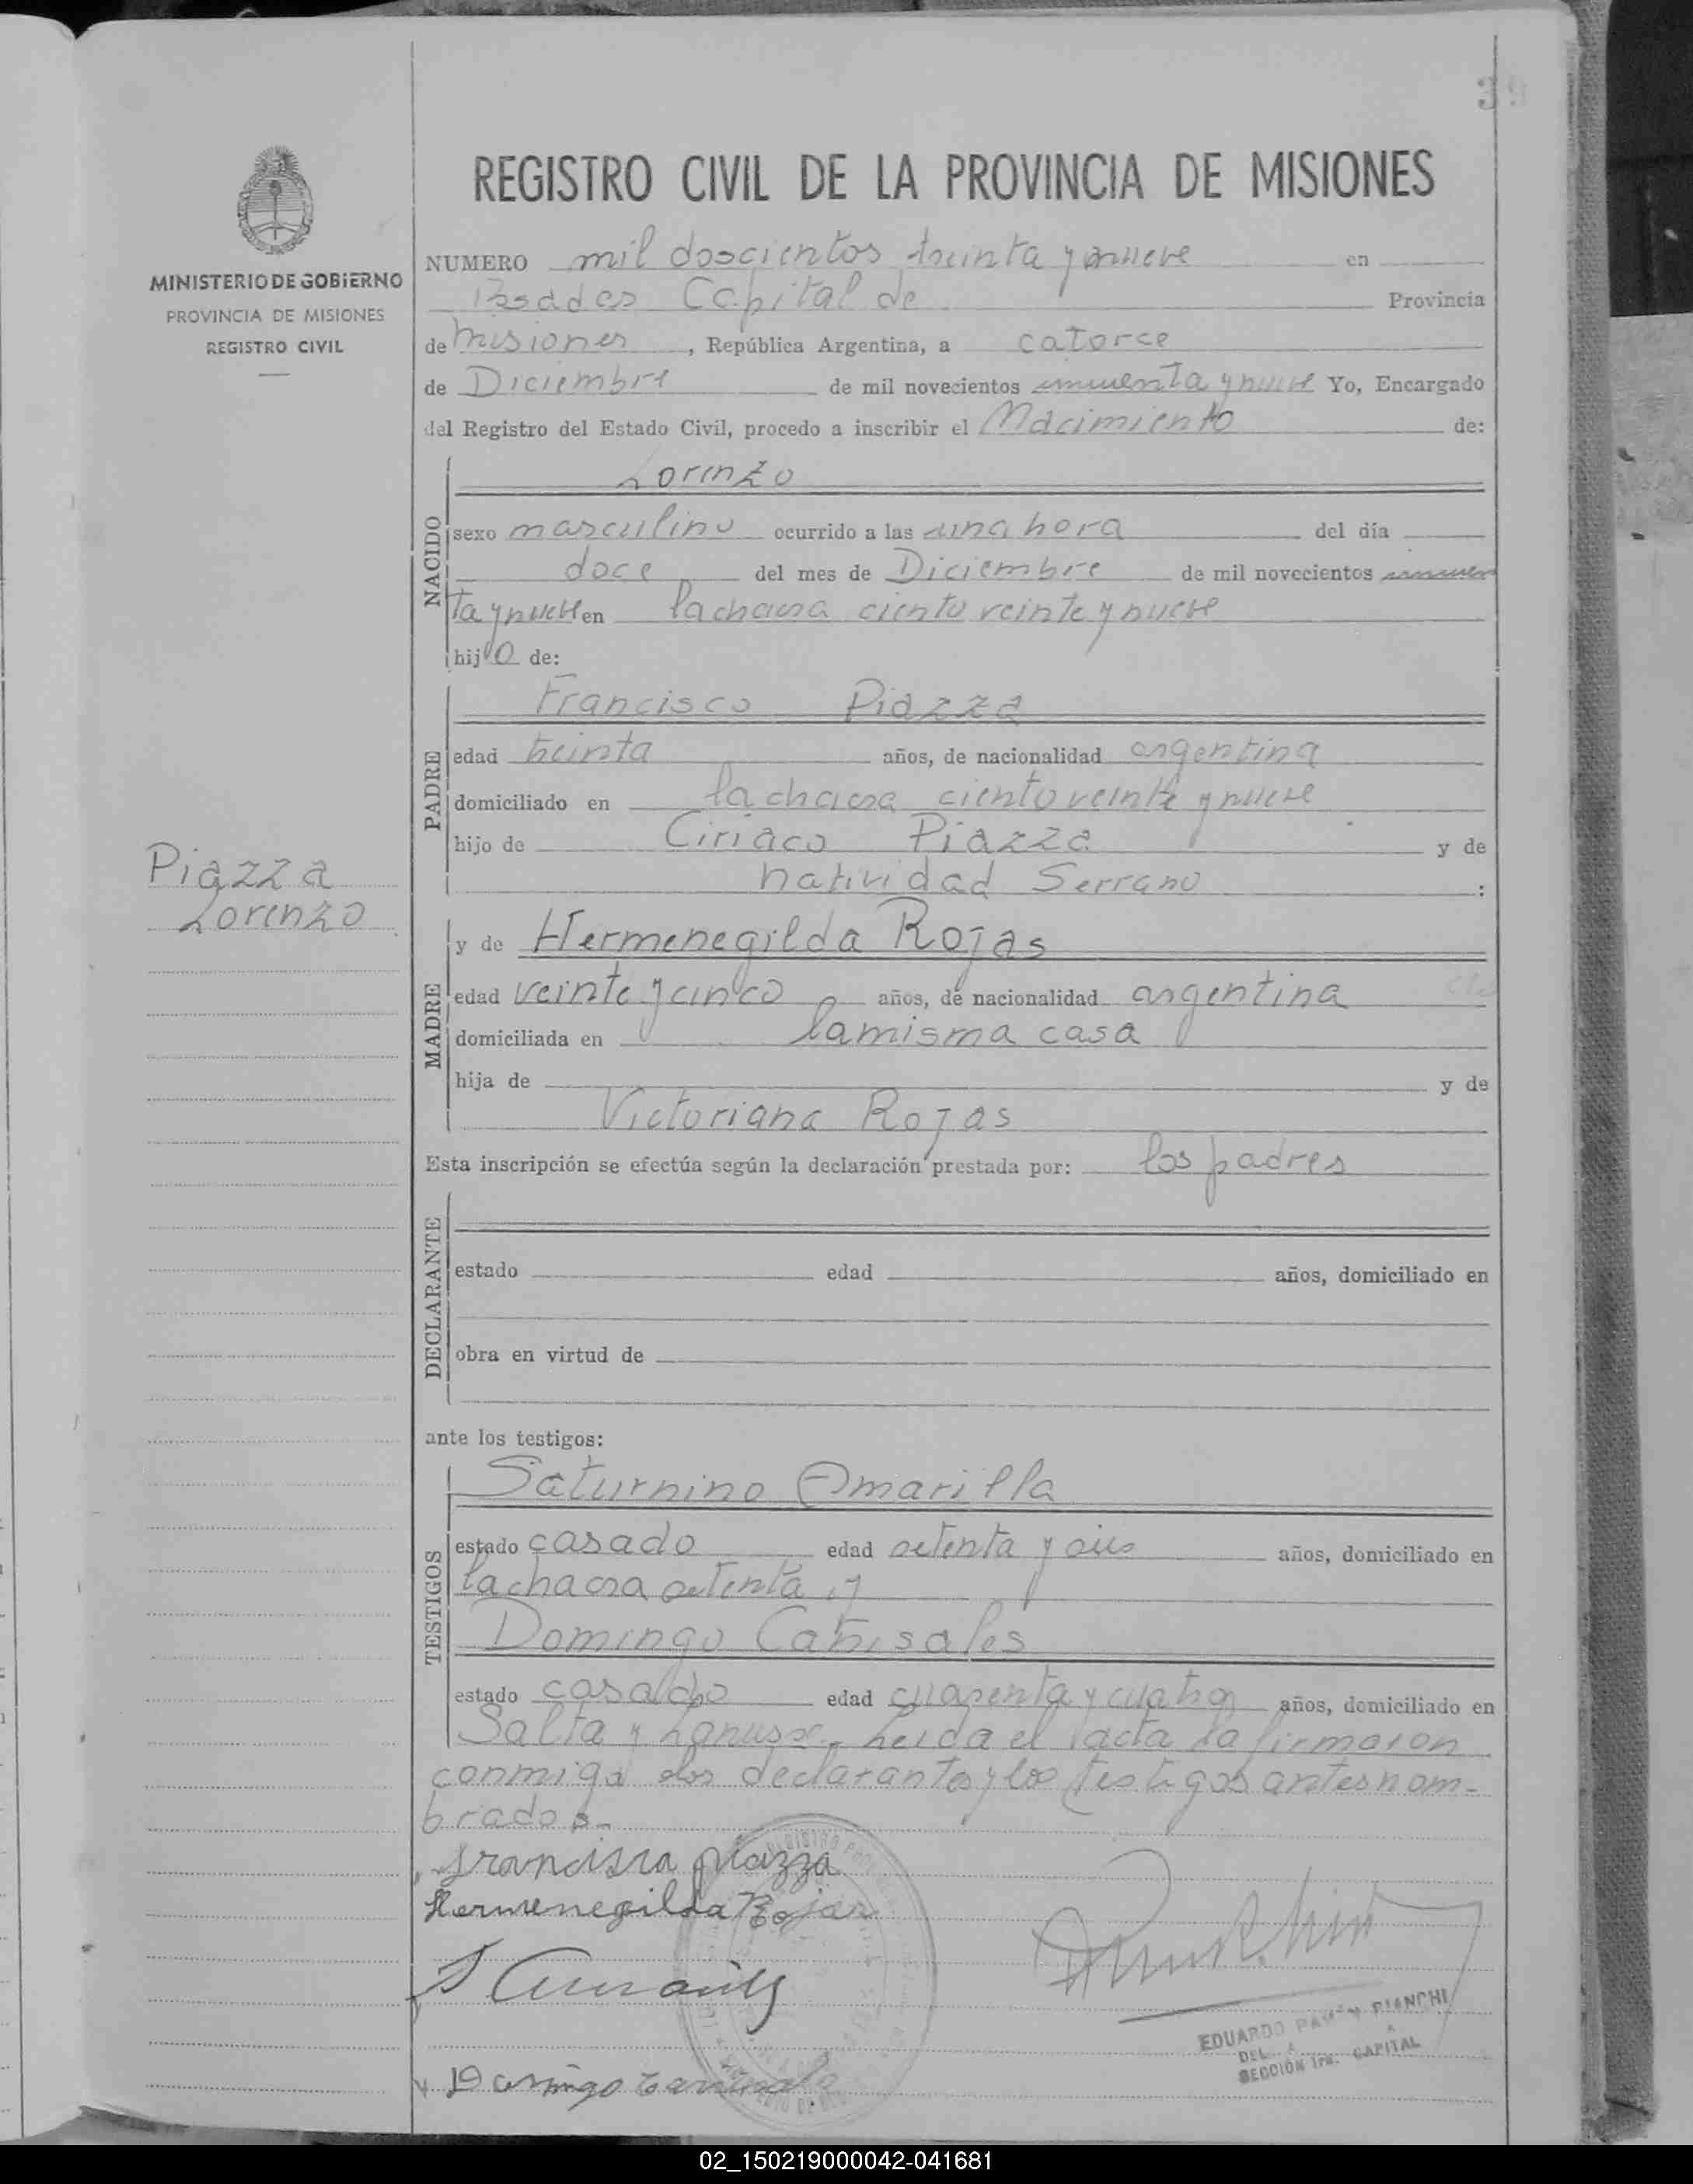 39
REGISTRO CIVIL DE LA PROVINCIA DE MISIONES
MINISTERIO DE GOBIERNO
PROVINCIA DE MISIONES
REGISTRO CIVIL
NUMERO mil doscientos treinta y nueve en
Posadas Capital de Provincia
de Misiones, República Argentina, a catorce
de Diciembre de mil novecientos cincuenta y nueve Yo, Encargado
del Registro del Estado Civil, procedo a inscribir el Nacimiento de:
NACIDO
Lorenzo
sexo masculino ocurrido a las una hora del día
doce del mes de Diciembre de mil novecientos cincuen
ta y nueve en la chacra ciento veinte y nueve
hijo de:
PADRE
Francisco Piazza
edad treinta años, de nacionalidad argentina
domiciliado en la chacra ciento veinte y nueve
hijo de Ciriaco Piazza y de
natividad Serrano :
Piazza
Lorenzo
MADRE
y de Hermenegilda Rojas
edad veinte y cinco años, de nacionalidad argentina
domiciliada en la misma casa
hija de y de
Victoriana Rojas
Esta inscripción se efectúa según la declaración prestada por: los padres
DECLARANTE
estado edad años, domiciliado en
obra en virtud de
ante los testigos:
TESTIGOS
Saturnino Amarilla
estado casado edad setenta y años, domiciliado en
la chacra setenta y
Domingo Cañisales
estado casado edad cuarenta y cuatro años, domiciliado en
Salta y Leida el acta la firmaron
conmigo los declarantes y los testigos antes nom-
brados.-
Francisco Piazza
Hermenegilda Rojas
S Amarilla
Domingo
EDUARDO RAMON BIANCHI
DEL
SECCIÓN 1ra. CAPITAL
02_150219000042-041681